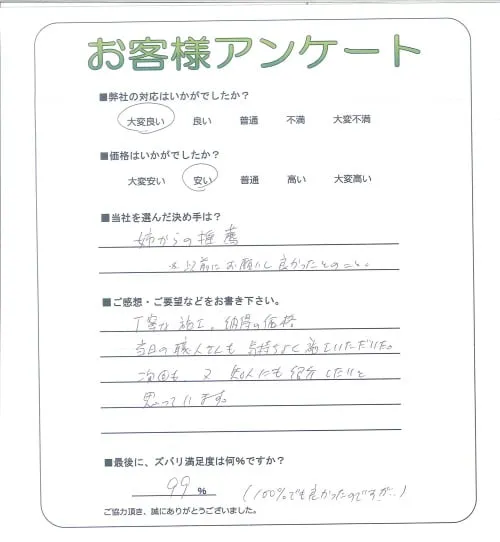 お客様アンケート
■弊社の対応はいかがでしたか？
大変良い 良い 普通 不満 大変不満
■価格はいかがでしたか？
大変安い 安い 普通 高い 大変高い
■当社を選んだ決め手は？
姉からの推薦
※以前にお願いし良かったとのこと。
■ご感想・ご要望などをお書き下さい。
丁寧な施工、納得の価格
当日の職人さんも気持ちよく施工いただいた。
次回も、又知人にも紹介したいと
思っています。
■最後に、ズバリ満足度は何％ですか？
99 ％ （100％でも良かったのですが…）
ご協力頂き、誠にありがとうございました。